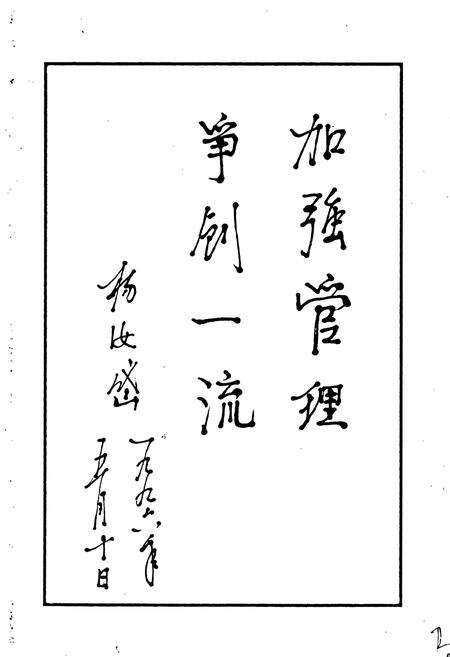 加強管理
爭創一流
杨汝岱
一九九六年
五月十日